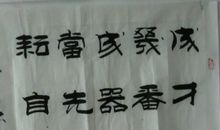 成才
發番
成器
當先
耘自